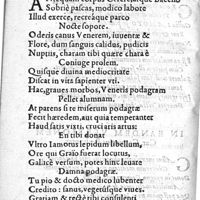 Sobriè pascas, modico labore
Illud exerce, recreáque parco
Nocte sopore.
Oderis canus Venerem, iuuentæ &
Floré, dum sanguis calidus, pudicis
Nuptijs, charam tibi quære chara è
Coniuge prolem.
Quisque diuina mediocritate
Discat in vita sapienter vti.
Hac, graues morbos, Veneris podagram
Pellet alumnam.
At parens si te miserum podagra
Fecit hæredem, aut quia temperanter
Haud satis vixti, cruciaris artus:
En tibi donat
Vltrò Iamotus lepidum libellum,
Ore qui Graio fuerat locutus,
Gallicè versum, potes hinc leuare
Damna podagræ.
Tu pio & docto medico lubenter
Credito: sanus, vegetúsque viues.
Gratiam & rectè tibi consulenti